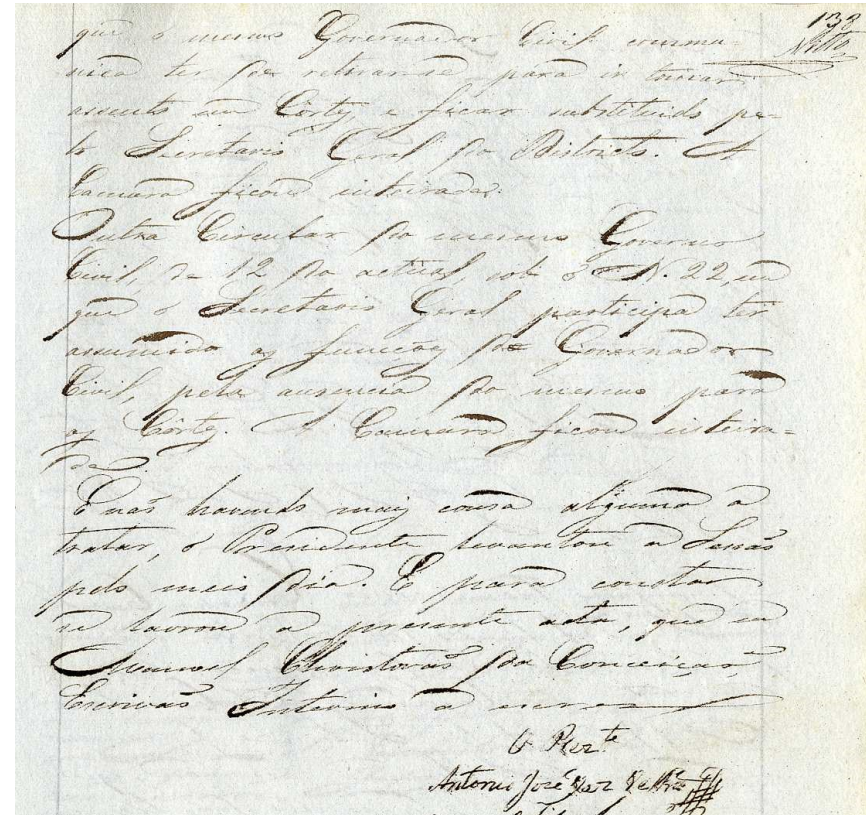 138
que o mesmo Governador Civil commu-
nica ter de retirar-se para ir tomar
assento em Côrtes e ficar substituido pe-
lo Secretario Geral do Districto. A
Camara ficou inteirada.
Outra Circular do mesmo Governo
Civil, de 12 do actual, sob o N. 22, em
que o Secretario Geral participa ter
assumido as funcções de Governador
Civil, pela ausencia do mesmo para
as Côrtes. A Camara ficou inteira-
da.
E não havendo mais cousa alguma a
tratar, o Presidente levantou a Sessão
pelo meio dia. E para constar
se lavrou a presente acta, que eu
Manoel Christovão da Conceição,
Escrivão Interino a escrevi
O Prez.te
Antonio José